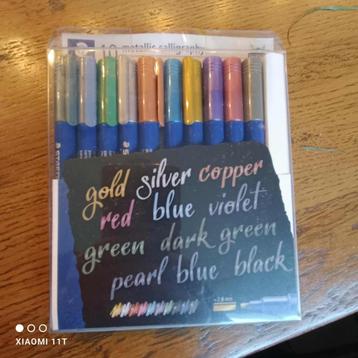 10 metallic calligraphy
gold silver copper
red blue violet
green dark green
pearl blue black
XIAOMI 11T